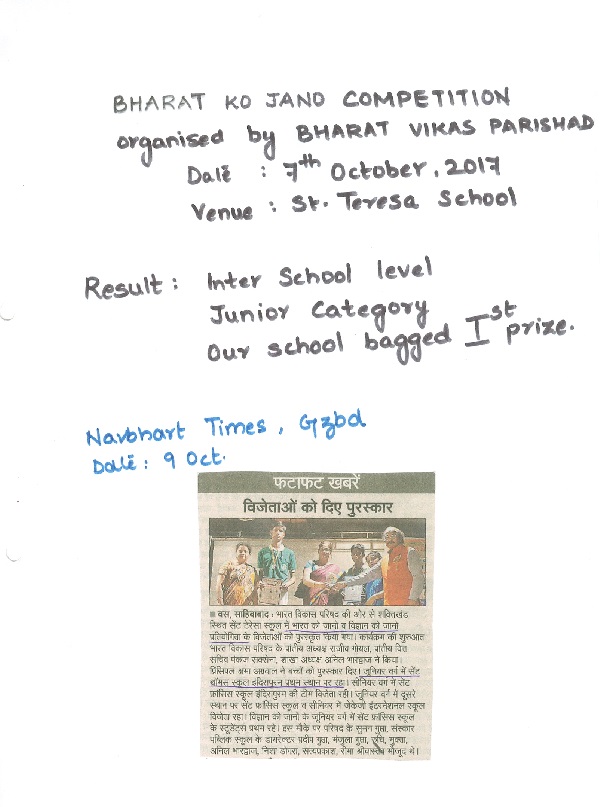 BHARAT KO JANO COMPETITION
organised by BHARAT VIKAS PARISHAD
Date : 7th October, 2017
Venue : St. Teresa School
Result : Inter School level
Junior Category
Our school bagged Ist prize.
Navbhart Times, Gzbd
Date : 9 Oct.
फटाफट खबरें
विजेताओं को दिए पुरस्कार
■ वस, साहिबाबाद : भारत विकास परिषद की ओर से शक्तिखंड
स्थित सेंट टेरेसा स्कूल में भारत को जानो व विज्ञान को जानो
प्रतियोगिता के विजेताओं को पुरस्कृत किया गया। कार्यक्रम की शुरुआत
भारत विकास परिषद के प्रांतीय अध्यक्ष राजीव गोयल, प्रांतीय वित्त
सचिव पंकज सक्सेना, शाखा अध्यक्ष अनिल भारद्वाज ने किया।
प्रिंसिपल अग्रवाल ने बच्चों को पुरस्कार दिए। जूनियर वर्ग में सेंट
स्कूल इंदिरापुरम प्रथम स्थान पर रहा। सीनियर वर्ग में सेंट
फ्रांसिस स्कूल इंदिरापुरम की टीम विजेता रही। जूनियर वर्ग में दूसरे
स्थान पर सेंट फ्रांसिस स्कूल व सीनियर में जेकेजी इंटरनेशनल स्कूल
विजेता रहा। विज्ञान को जानो के जूनियर वर्ग में सेंट फ्रांसिस स्कूल
के स्टूडेंट्स प्रथम रहे। इस मौके पर परिषद के सुमन गुप्ता, संस्कार
पब्लिक स्कूल के डायरेक्टर प्रदीप गुप्ता, मंजुला गुप्ता, रुचि, मुक्ता,
अनिल भारद्वाज, निशा डोगरा, सत्यप्रकाश, सीमा श्रीवास्तव मौजूद थे।